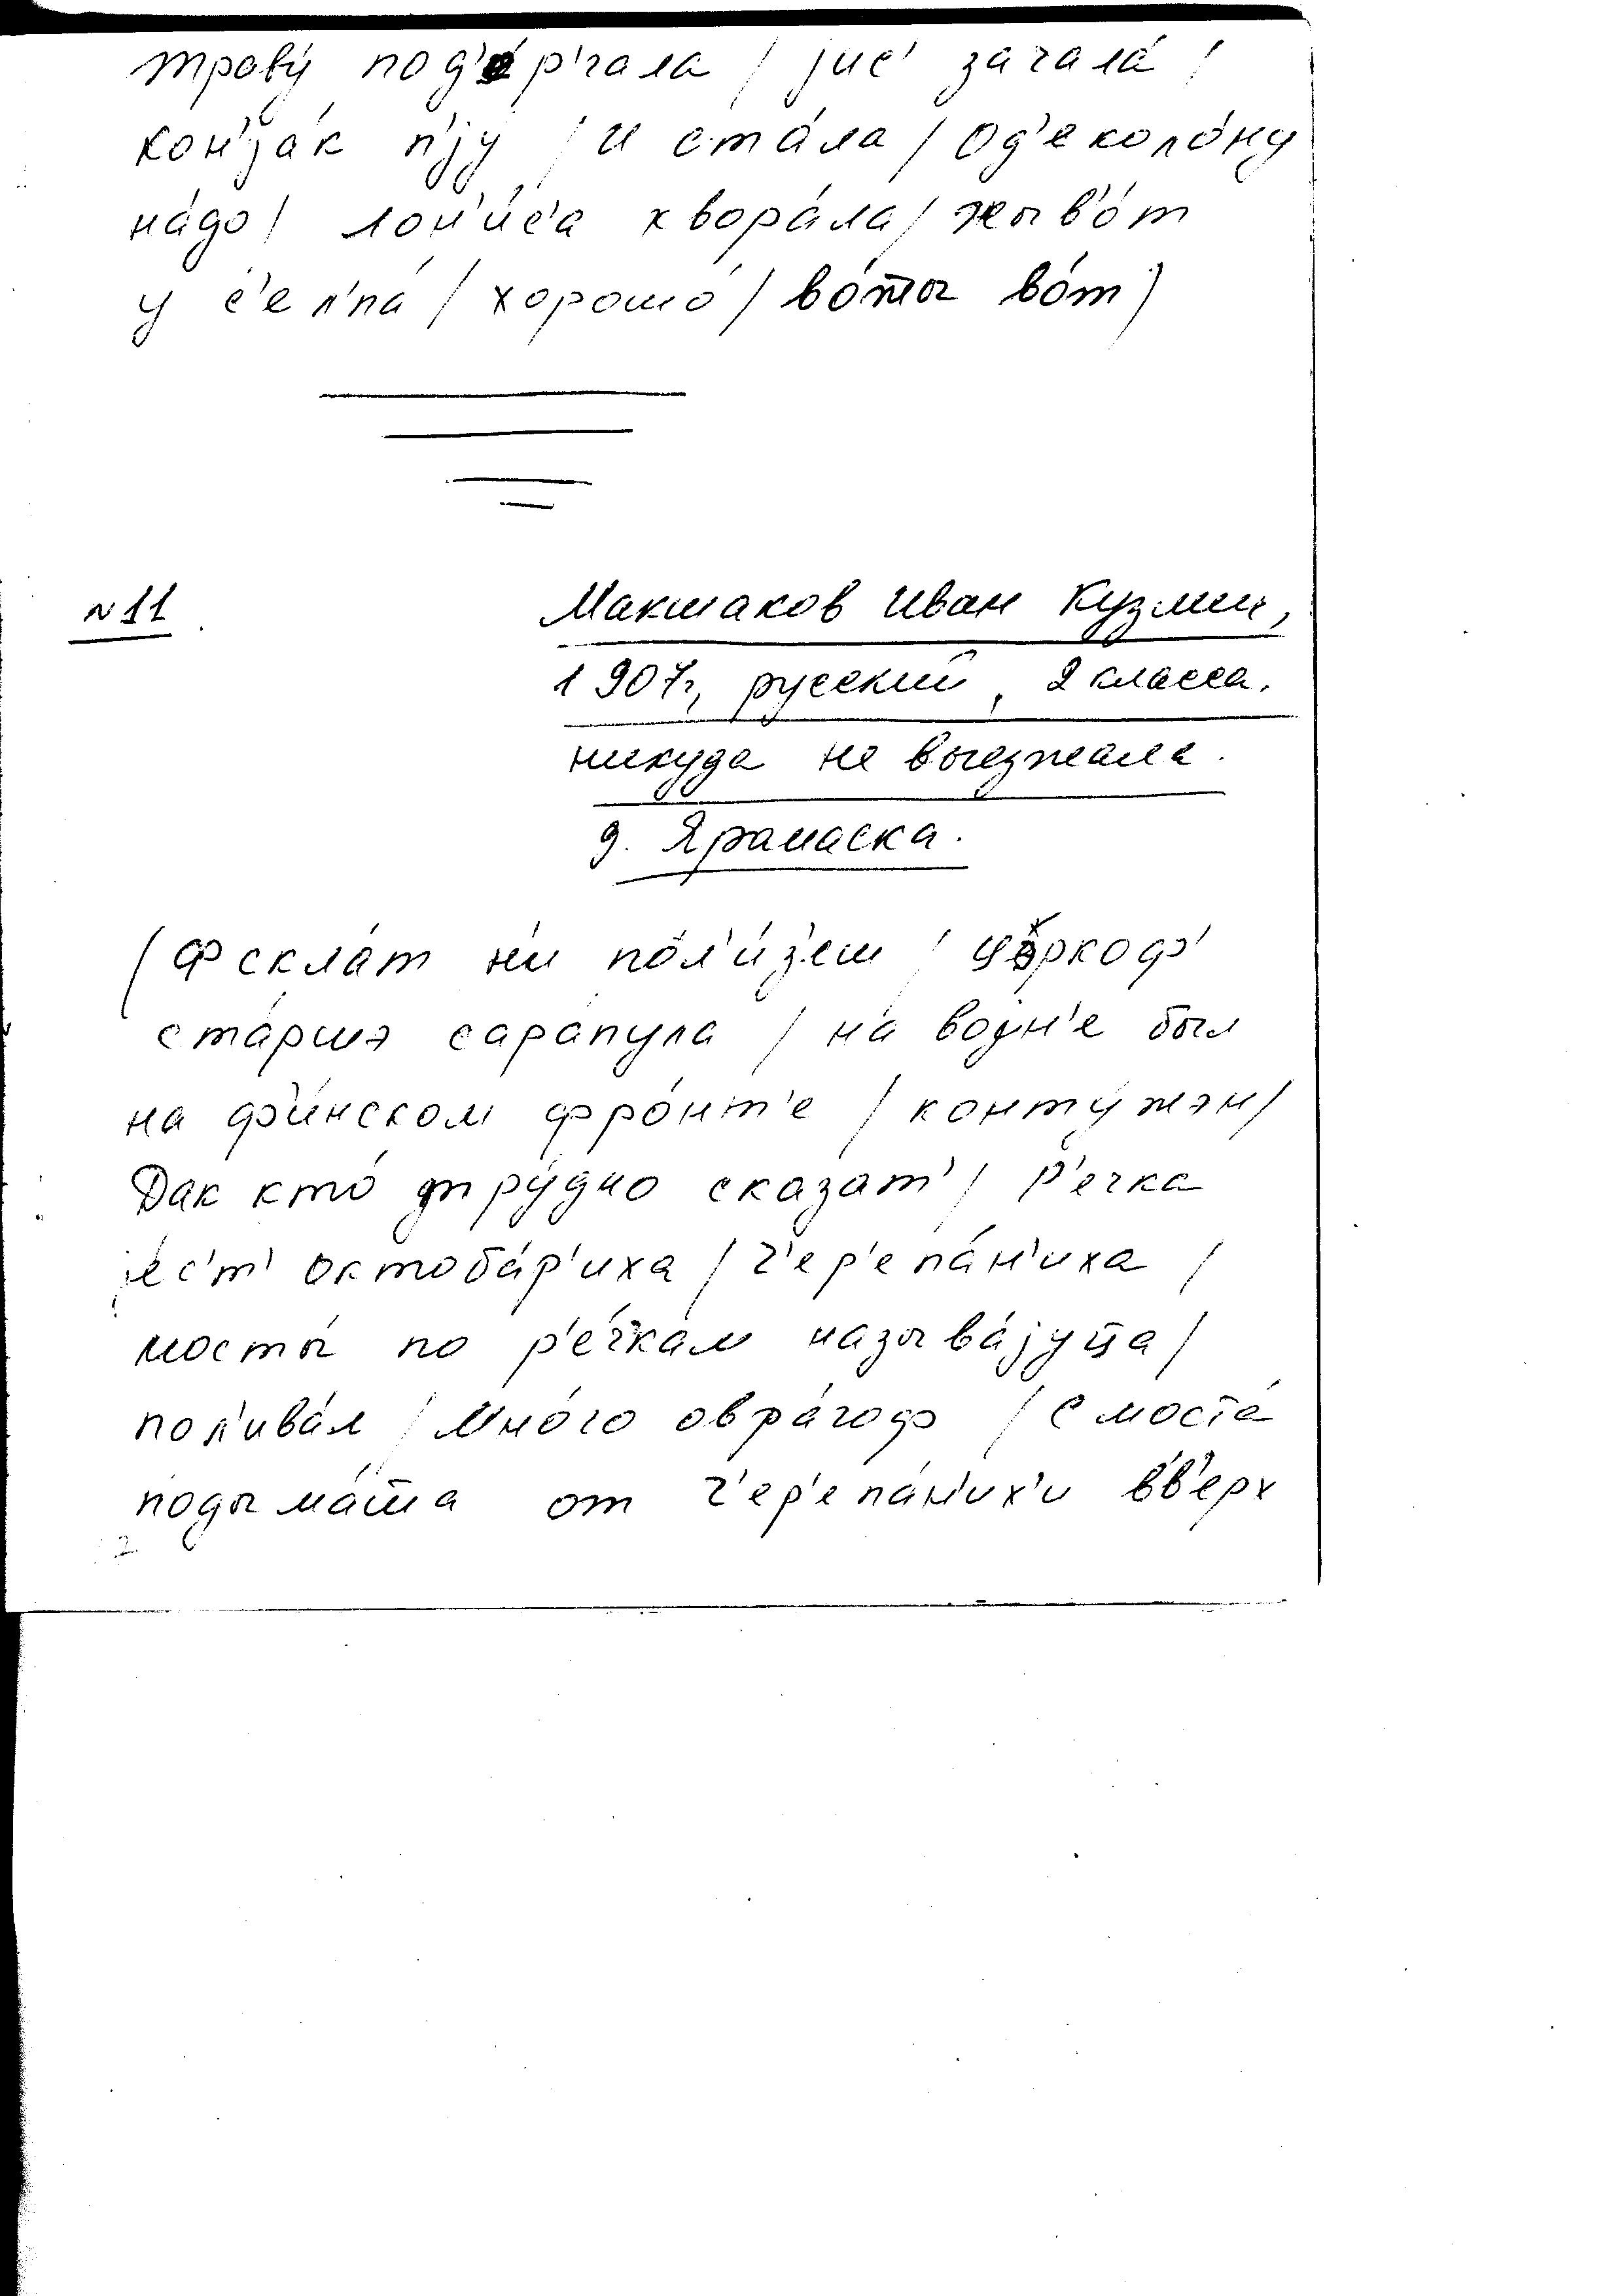 траву́ под'е́р'гала / јис' зачала́ /
кон'јак п'ју / и ста́ла / од'еколо́ну
на́до / лон'и́с'а хвора́ла / жыв'о́т
у с'ел'па́ / хорошо́ / во́т ты во́т /
№11
Макшаков Иван Кузмич,
1907г, русский, 2 класса.
никуда не выезжала.
д. Яромаска.
/ ф скла́т ни пол'и́з'еш / цэ́ркоф'
ста́ршэ сара́пула / на војн'е был
на ф'и́нском фро́нт'е / конту́жэн /
Дак кто́ тру́дно сказат' / р'ечка
јес'т' октоба́р'иха / ч'ер'епа́н'иха /
мосты́ по р'е́чкам называ́јуца /
пол'ива́л / мно́го овра́гоф / с моста́
подыма́цца от ч'ер'епа́н'их'и вв'ерх
2